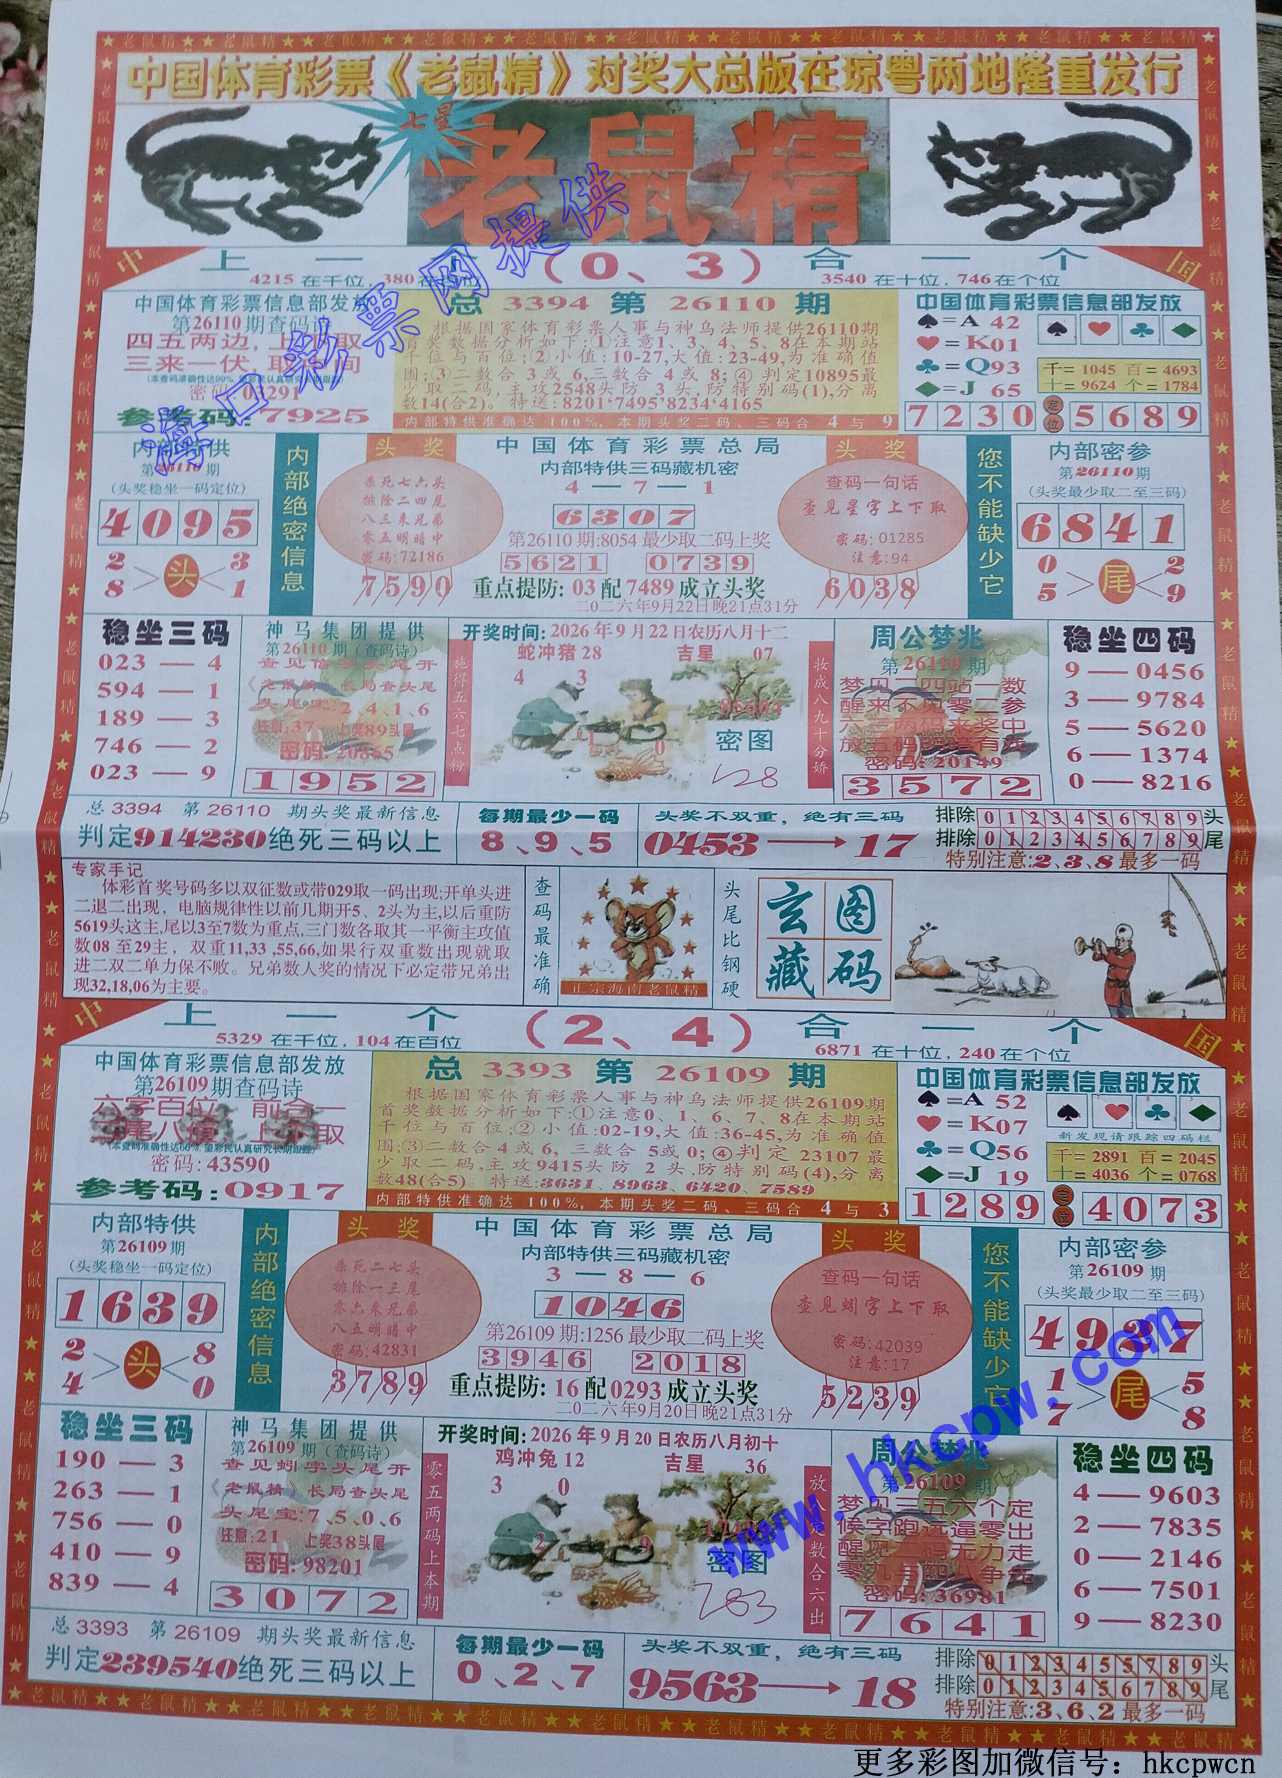 中国体育彩票《老鼠精》对奖大总版在琼粤两地隆重发行
七星
老鼠精
中
国
上一个(0、3)合一个
4215在千位,380在百位
3540在十位,746在个位
中国体育彩票信息部发放
第26110期查码诗
四五两边,上下取
三来一伏,取中间
参考码:7925
总3394第26110期
根据国家体育彩票人事与神乌法师提供26110期
首奖数据分析如下:①注意1、3、4、5、8在本期站
千位与百位;②小值:10-27,大值:23-49,为准确值
围;③二数合3或6,三数合4或8;④判定10895最
少取二码,主攻2548头防3头,防特别码(1),分离
数14(合2)。特送:8201*7495*8234*4165
内部特供准确达100%,本期头奖二码、三码合4与9
中国体育彩票信息部发放
♠=A 42
♥=K01
♣=Q93
♦=J 65
千=1045 百=4693
十=9624 个=1784
7230定位5689
内部特供
第26110期
(头奖稳坐一码定位)
4095
2 8 头 3 1
内部绝密信息
头奖
杀死七六头
排除二四尾
八三来兄弟
零五明暗中
密码:72186
7590
中国体育彩票总局
内部特供三码藏机密
4—7—1
6307
第26110期:8054最少取二码上奖
5621 0739
重点提防:03配7489成立头奖
二〇二六年9月22日晚21点31分
头奖
查码一句话
查见星字上下取
密码:01285
注意:94
6038
您不能缺少它
内部密参
第26110期
(头奖最少取二至三码)
6841
0 5 尾 2 9
稳坐三码
023—4
594—1
189—3
746—2
023—9
神马集团提供
第26110期(查码诗)
《老鼠精》长局查头尾
头尾宝:2、4、1、6
狂意:37 上奖89头尾
密码:20865
1952
开奖时间:2026年9月22日农历八月十二
蛇冲猪28 吉星 07
4 3
1 0
密图
128
妆成八九十分娇
周公梦兆
第26110期
密码:20149
3572
稳坐四码
9—0456
3—9784
5—5620
6—1374
0—8216
总3394 第26110期头奖最新信息
判定914230绝死三码以上
每期最少一码
8、9、5
头奖不双重,绝有三码
0453→17
排除0123456789头
排除0123456789尾
特别注意:2、3、8最多一码
专家手记
体彩首奖号码多以双征数或带029取一码出现;开单头进
二退二出现,电脑规律性以前几期开5、2头为主,以后重防
5619头这主,尾以3至7数为重点,三门数各取其一平衡主攻值
数08至29主,双重11,33,55,66,如果行双重数出现就取
进二双二单力保不败。兄弟数人奖的情况下必定带兄弟出
现32,18,06为主要。
查码最准确
正宗海南老鼠精
头尾比钢硬
玄图藏码
中
国
上一个(2、4)合一个
5329在千位,104在百位
6871在十位,240在个位
中国体育彩票信息部发放
第26109期查码诗
密码:43590
参考码:0917
总3393第26109期
根据国家体育彩票人事与神乌法师提供26109期
首奖数据分析如下:①注意0、1、6、7、8在本期站
千位与百位;②小值:02-19,大值:36-45,为准确值
围;③二数合4或6,三数合5或0;④判定23107最
少取二码,主攻9415头防2头,防特别码(4),分离
数48(合5)。特送:3631、8963、6420、7589
内部特供准确达100%,本期头奖二码、三码合4与3
中国体育彩票信息部发放
♠=A 52
♥=K07
♣=Q56
♦=J 19
新发现请跟踪四码栏
千=2891 百=2045
十=4036 个=0768
1289定位4073
内部特供
第26109期
(头奖稳坐一码定位)
1639
2 4 头 8 0
内部绝密信息
头奖
杀死二七头
排除一三尾
零六来兄弟
八五明暗中
密码:42831
3789
中国体育彩票总局
内部特供三码藏机密
3—8—6
1046
第26109期:1256最少取二码上奖
3946 2018
重点提防:16配0293成立头奖
二〇二六年9月20日晚21点31分
头奖
查码一句话
查见蚓字上下取
密码:42039
注意:17
5239
您不能缺少它
内部密参
第26109期
(头奖最少取二至三码)
4937
1 7 尾 5 8
稳坐三码
190—3
263—1
756—0
410—9
839—4
神马集团提供
第26109期(查码诗)
查见蚓字头尾开
《老鼠精》长局查头尾
头尾宝:7、5、0、6
狂意:21 上奖38头尾
密码:98201
3072
零五两码上本期
开奖时间:2026年9月20日农历八月初十
鸡冲兔12 吉星 36
3 0
2 9
密图
283
周公梦兆
第26109期
梦见三五六个定
密码:36981
7641
稳坐四码
4—9603
2—7835
0—2146
6—7501
9—8230
总3393 第26109期头奖最新信息
判定239540绝死三码以上
每期最少一码
0、2、7
头奖不双重,绝有三码
9563→18
排除0123456789头
排除0123456789尾
特别注意:3、6、2最多一码
海口彩票网提供
www.hkcpw.com
更多彩图加微信号:hkcpwcn